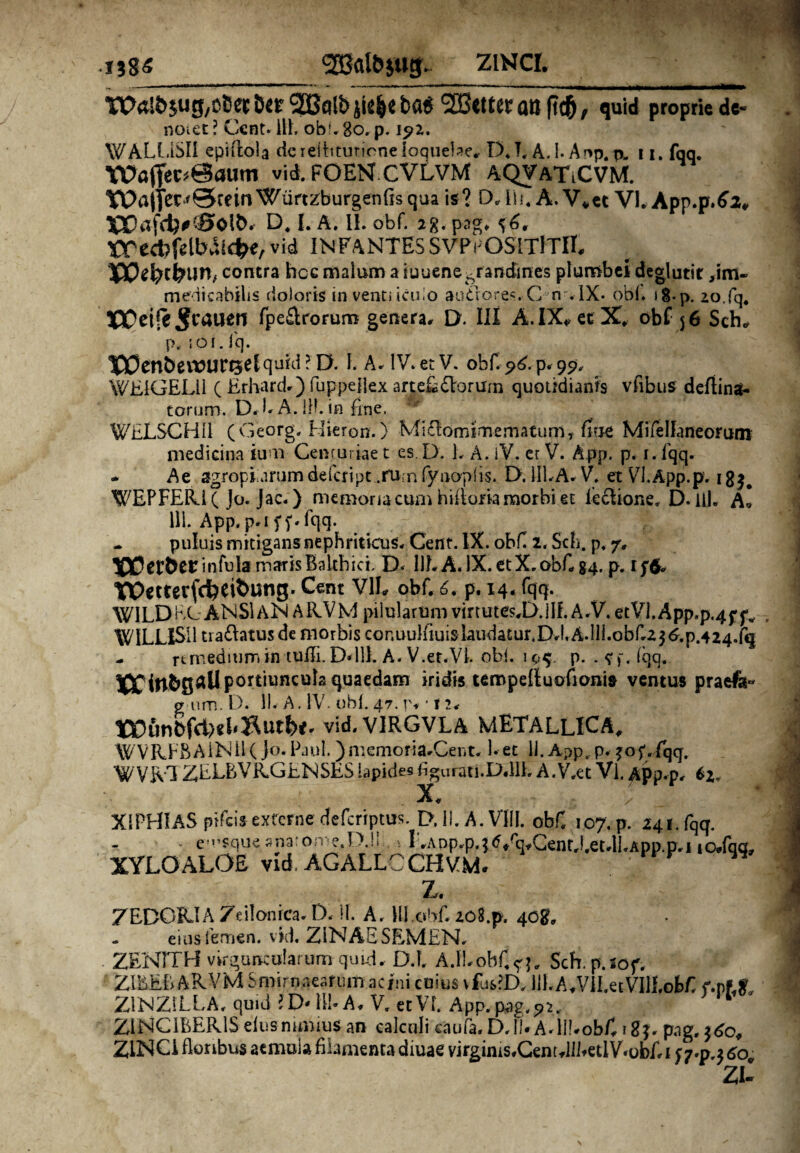 1386 Waldzug. ZINCI.
Waldzug, oder der Wald ziehe das Wetter an sich, quid proprie de-
notet? Cent. III. obs. 80. p. 192.
WALLISII epistola de restitutione loquelae. D. I. A. I. App. p. 11. sqq.
Wasser-Baum vid. FOENICVLVM AQVATICVM.
Wasser-Stein Würtzburgensis qua is? D. III. A. V. et VI. App. p. 62.
Wasch-Gold. D. I. A. II. obs. 28. pag. 56.
Wechselbälche, vid INFANTES SVPPOSITITII.
Wehthun, contra hoc malum a iuuene grandines plumbei deglutit, im-
medicabilis doloris in ventriculo auctores. Cen. IX. obs. 18. p. 20. sq.
Weise Frauen spectrorum genera. D. III A. IX. et X. obs 56 Sch.
p. 101. sq.
Wendewurtzel quid? D. I. A. IV. et V. obs. 96. p. 99.
WEIGELII (Erhard.) suppellex artefactorum quotidianis vsibus destina-
torum. D. I. A. III. in fine.
WELSCHII (Georg. Hieron.) Mictomimematum, siue Misellaneorum
medicinalium Centuriae t es. D. I. A. IV. et V. App. p. 1. sqq.
- Ae agropilarum descript.rum synopsis. D. III. A. V. et VI. App. p. 183.
WEPFERI (Jo. Jac.) memoria cum historia morbi et sectione. D. III. A.
III. App. p. 155. sqq.
- puluis mitigans nephriticus. Cent. IX. obs. 2. Sch. p. 7.
Werder insula maris Balthici. D. III. A. IX. et X. obs. 84. p. 156.
Wetterscheibung. Cent VII. obs. 6. p. 14. sqq.
WILDEGANSIANARVM pilularum virtutes. D. III. A. V. et VI. App. p. 455.
WILLISII tractatus de morbis conuulsiuis laudatur. D. I. A. III. obs. 236. p. 424. sq
- remedium in tussi. D. III. A. V. et. VI. obs. 105. p. . 55. sqq.
Windgall portiuncula quaedam iridis tempestuosionis ventus praesa-
gium. D. II. A. IV. obs. 47. p. 112.
Wündschel-Ruthe. vid. VIRGVLA METALLICA.
WVRFBAINII (Jo. Paul.) memoria. Cent. I. et II. App. p. 305. sqq.
WVRTZELBVRGENSES lapides figurati. D. III. A. V. et VI. App. p. 62.
X.
XIPHIAS piscis externe descriptus. D. II. A. VIII. obs. 107. p. 241. sqq.
- eiusque anatome. D. II. A. I. App. p. 36. sq. Cent. I. et. II. App. p. 110. sqq.
XYLOALOE vid. AGALLOCHVM.
Z.
ZEDORIA Zeilonica. D. II. A. III. obs. 208. p. 408.
- eius semen. vid. ZINAE SEMEN.
ZENITH virguncularum quid. D. I. A. II. obs. 53. Sch. p. 105.
ZIBEBARVM Smirnaearum acini cuius vsus? D. III. A. VII. et VIII. obs. 5. pf. 8.
ZINZILLA. quid? D. III. A. V. et VI. App. pag. 92.
ZINCIBERIS eius nimius an calculi causa. D. II. A. III. obs. 183. pag. 360.
ZINCI floribus aemula filamenta diuae virginis. Cent. III. et IV. obs. 157. p. 360.
ZI-